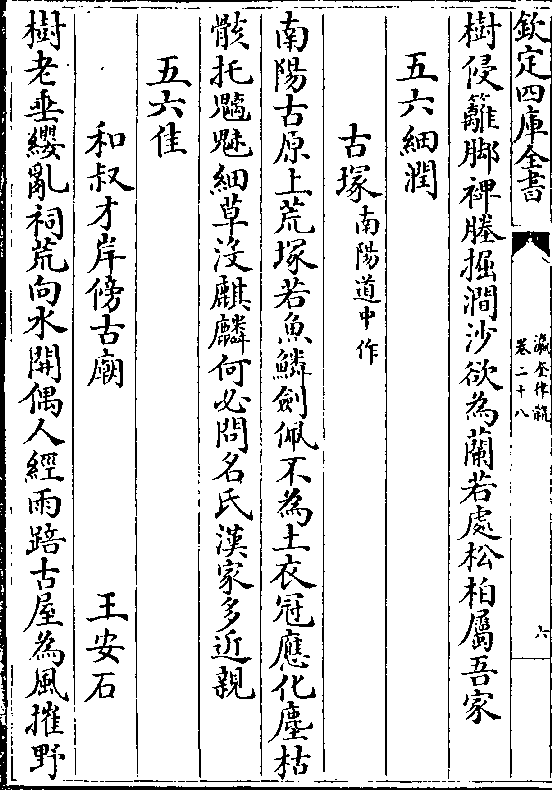 欽定四庫全書
瀛奎律髓
卷二十八
六
樹侵籬脚裨塍掘澗沙欲為蘭若處松柏屬吾家
五六細潤
古塚南陽道中作
南陽古原上荒塚若魚鱗劍佩不為土衣冠應化塵枯
骸托魑魅細草没麒麟何必問名氏漢家多近親
五六佳
和叔才岸傍古廟 王安石
樹老垂纓亂祠荒向水開偶人經雨踣古屋為風摧野